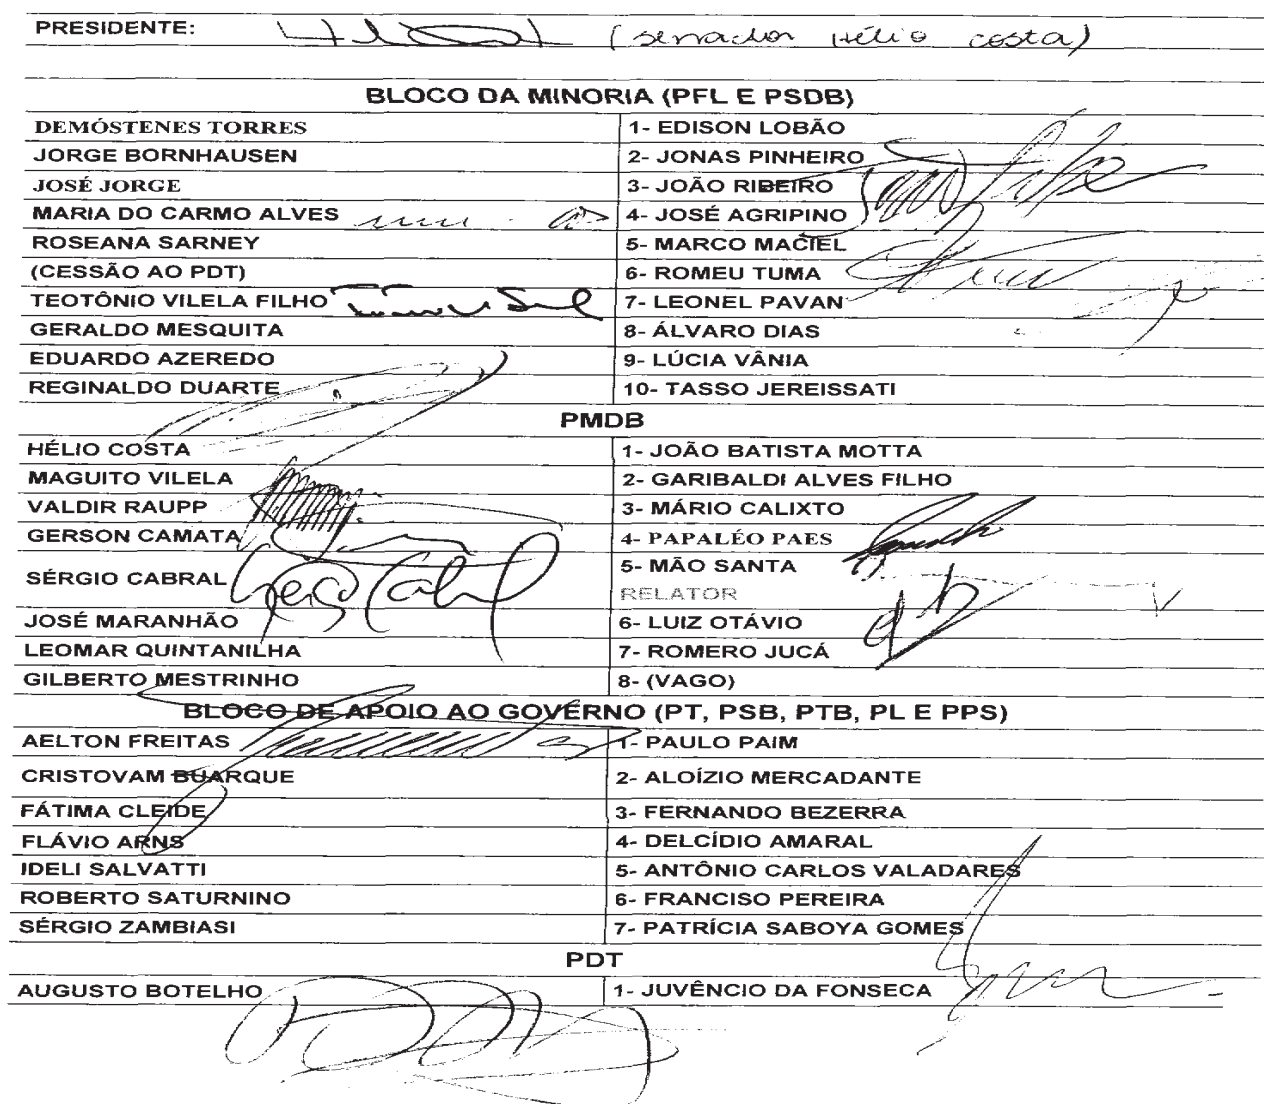 PRESIDENTE: (senador Hélio Costa)
BLOCO DA MINORIA (PFL E PSDB)
DEMÓSTENES TORRES 1- EDISON LOBÃO
JORGE BORNHAUSEN 2- JONAS PINHEIRO
JOSÉ JORGE 3- JOÃO RIBEIRO
MARIA DO CARMO ALVES 4- JOSÉ AGRIPINO
ROSEANA SARNEY 5- MARCO MACIEL
(CESSÃO AO PDT) 6- ROMEU TUMA
TEOTÔNIO VILELA FILHO 7- LEONEL PAVAN
GERALDO MESQUITA 8- ÁLVARO DIAS
EDUARDO AZEREDO 9- LÚCIA VÂNIA
REGINALDO DUARTE 10- TASSO JEREISSATI
PMDB
HÉLIO COSTA 1- JOÃO BATISTA MOTTA
MAGUITO VILELA 2- GARIBALDI ALVES FILHO
VALDIR RAUPP 3- MÁRIO CALIXTO
GERSON CAMATA 4- PAPALÉO PAES
SÉRGIO CABRAL Sérgio Cabral 5- MÃO SANTA
RELATOR
JOSÉ MARANHÃO 6- LUIZ OTÁVIO
LEOMAR QUINTANILHA 7- ROMERO JUCÁ
GILBERTO MESTRINHO 8- (VAGO)
BLOCO DE APOIO AO GOVERNO (PT, PSB, PTB, PL E PPS)
AELTON FREITAS 1- PAULO PAIM
CRISTOVAM BUARQUE 2- ALOÍZIO MERCADANTE
FÁTIMA CLEIDE 3- FERNANDO BEZERRA
FLÁVIO ARNS 4- DELCÍDIO AMARAL
IDELI SALVATTI 5- ANTÔNIO CARLOS VALADARES
ROBERTO SATURNINO 6- FRANCISO PEREIRA
SÉRGIO ZAMBIASI 7- PATRÍCIA SABOYA GOMES
PDT
AUGUSTO BOTELHO 1- JUVÊNCIO DA FONSECA